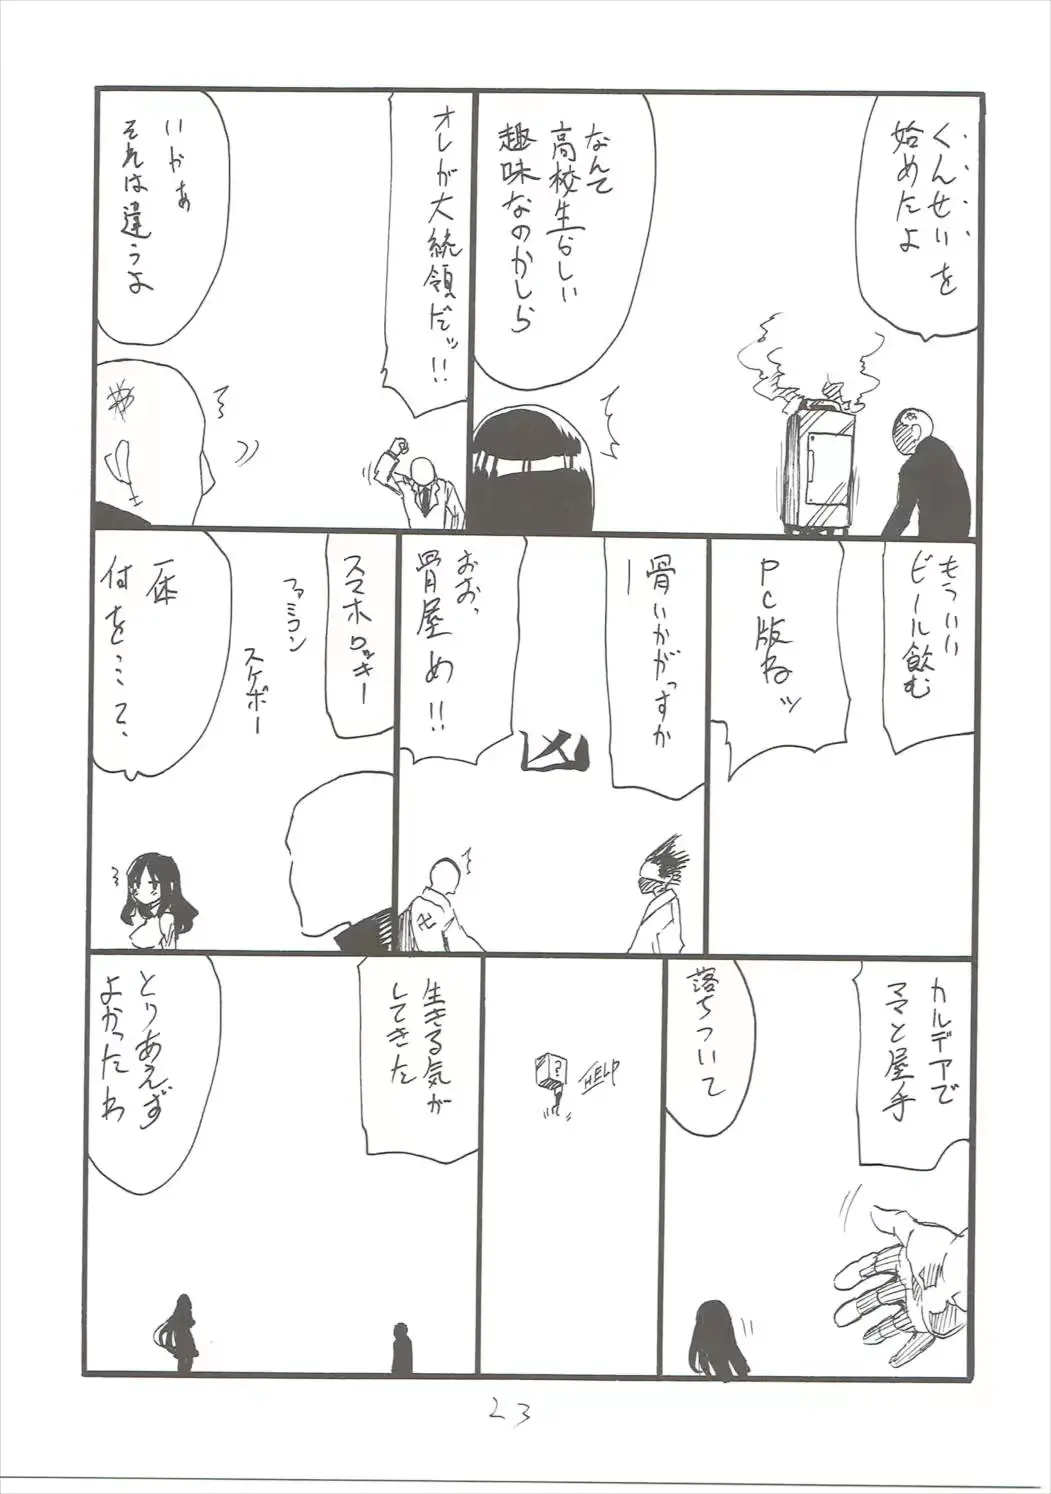 くんせいを
始めたよ
なんて
高校生らしい
趣味なのかしら
オレが大統領だッ!!
いやあ
それは違うよ
もういい
ビール飲む
PC版ねッ
骨いかがっすか
ー
凶
おお、
骨屋め!!
スマホロッキー
ファミコン
スケボー
一体
何を…って、
カルデアで
ママと屋手
落ちついて
?
HELP
生きる気が
してきた
とりあえず
よかったわ
23